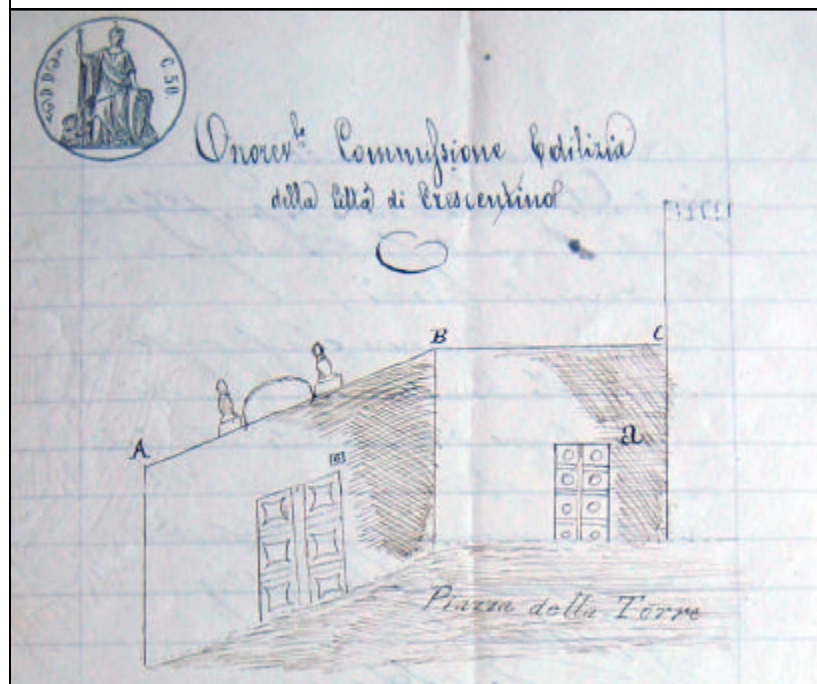 C. 50.
Onorev.le Commissione Edilizia
della Città di Crescentino
B
C
A
a
Piazza della Torre